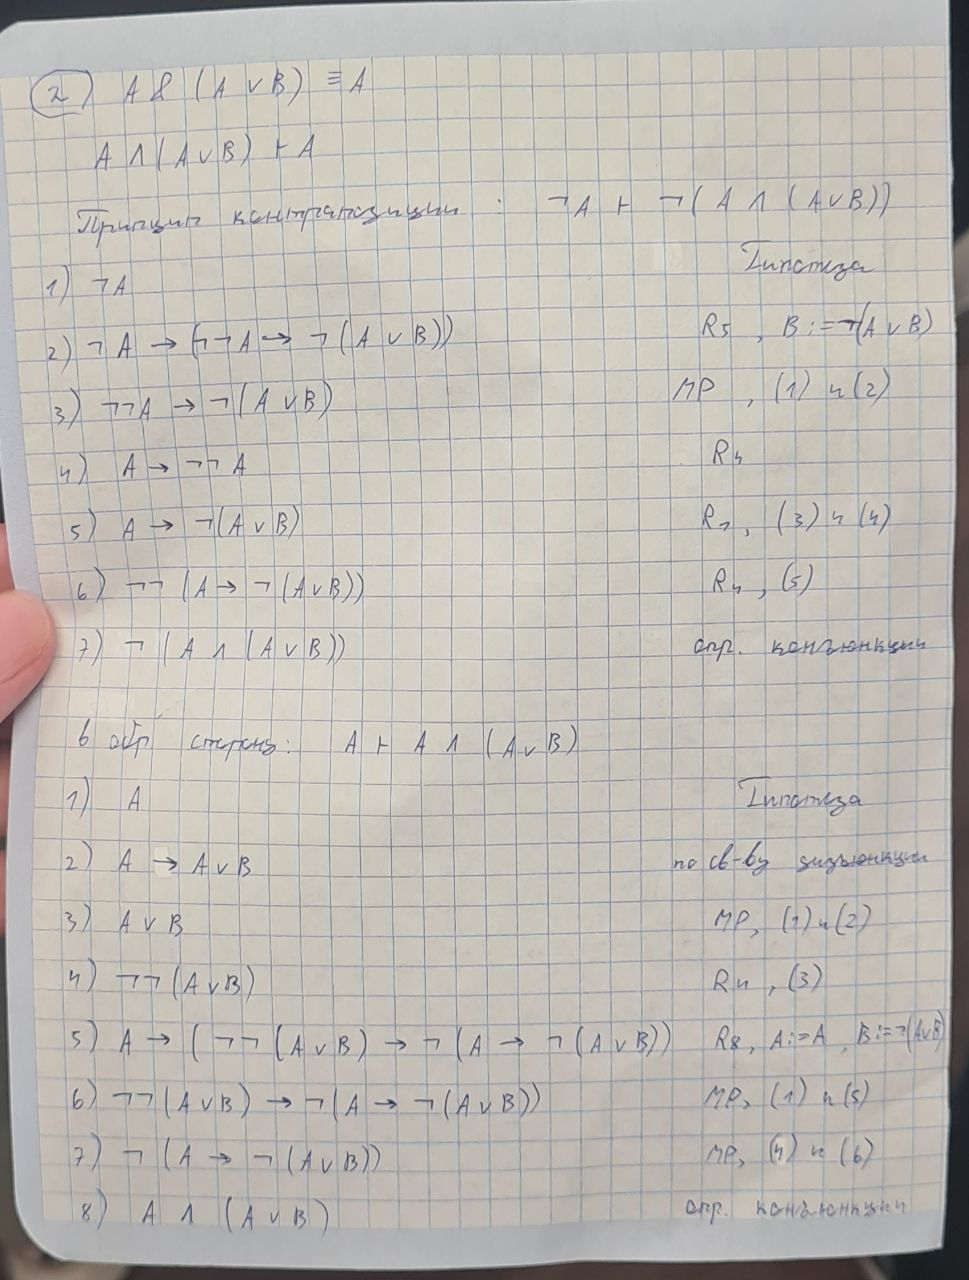 2) A & (A ∨ B) ≡ A
A ∧ (A ∨ B) ⊢ A
Принцип контрапозиции : ¬A ⊢ ¬(A ∧ (A ∨ B))
1) ¬A Гипотеза
2) ¬A → (¬¬A → ¬(A ∨ B)) R5, B := ¬(A ∨ B)
3) ¬¬A → ¬(A ∨ B) MP, (1) и (2)
4) A → ¬¬A R4
5) A → ¬(A ∨ B) R1, (3) и (4)
6) ¬¬(A → ¬(A ∨ B)) R4, (5)
7) ¬(A ∧ (A ∨ B)) опр. конъюнкции
В обр сторону: A ⊢ A ∧ (A ∨ B)
1) A Гипотеза
2) A → A ∨ B по св-ву дизъюнкции
3) A ∨ B MP, (1) и (2)
4) ¬¬(A ∨ B) R4, (3)
5) A → (¬¬(A ∨ B) → ¬(A → ¬(A ∨ B)) R8, A := A, B := ¬(A ∨ B)
6) ¬¬(A ∨ B) → ¬(A → ¬(A ∨ B)) MP, (1) и (5)
7) ¬(A → ¬(A ∨ B)) MP, (4) и (6)
8) A ∧ (A ∨ B) опр. конъюнкции